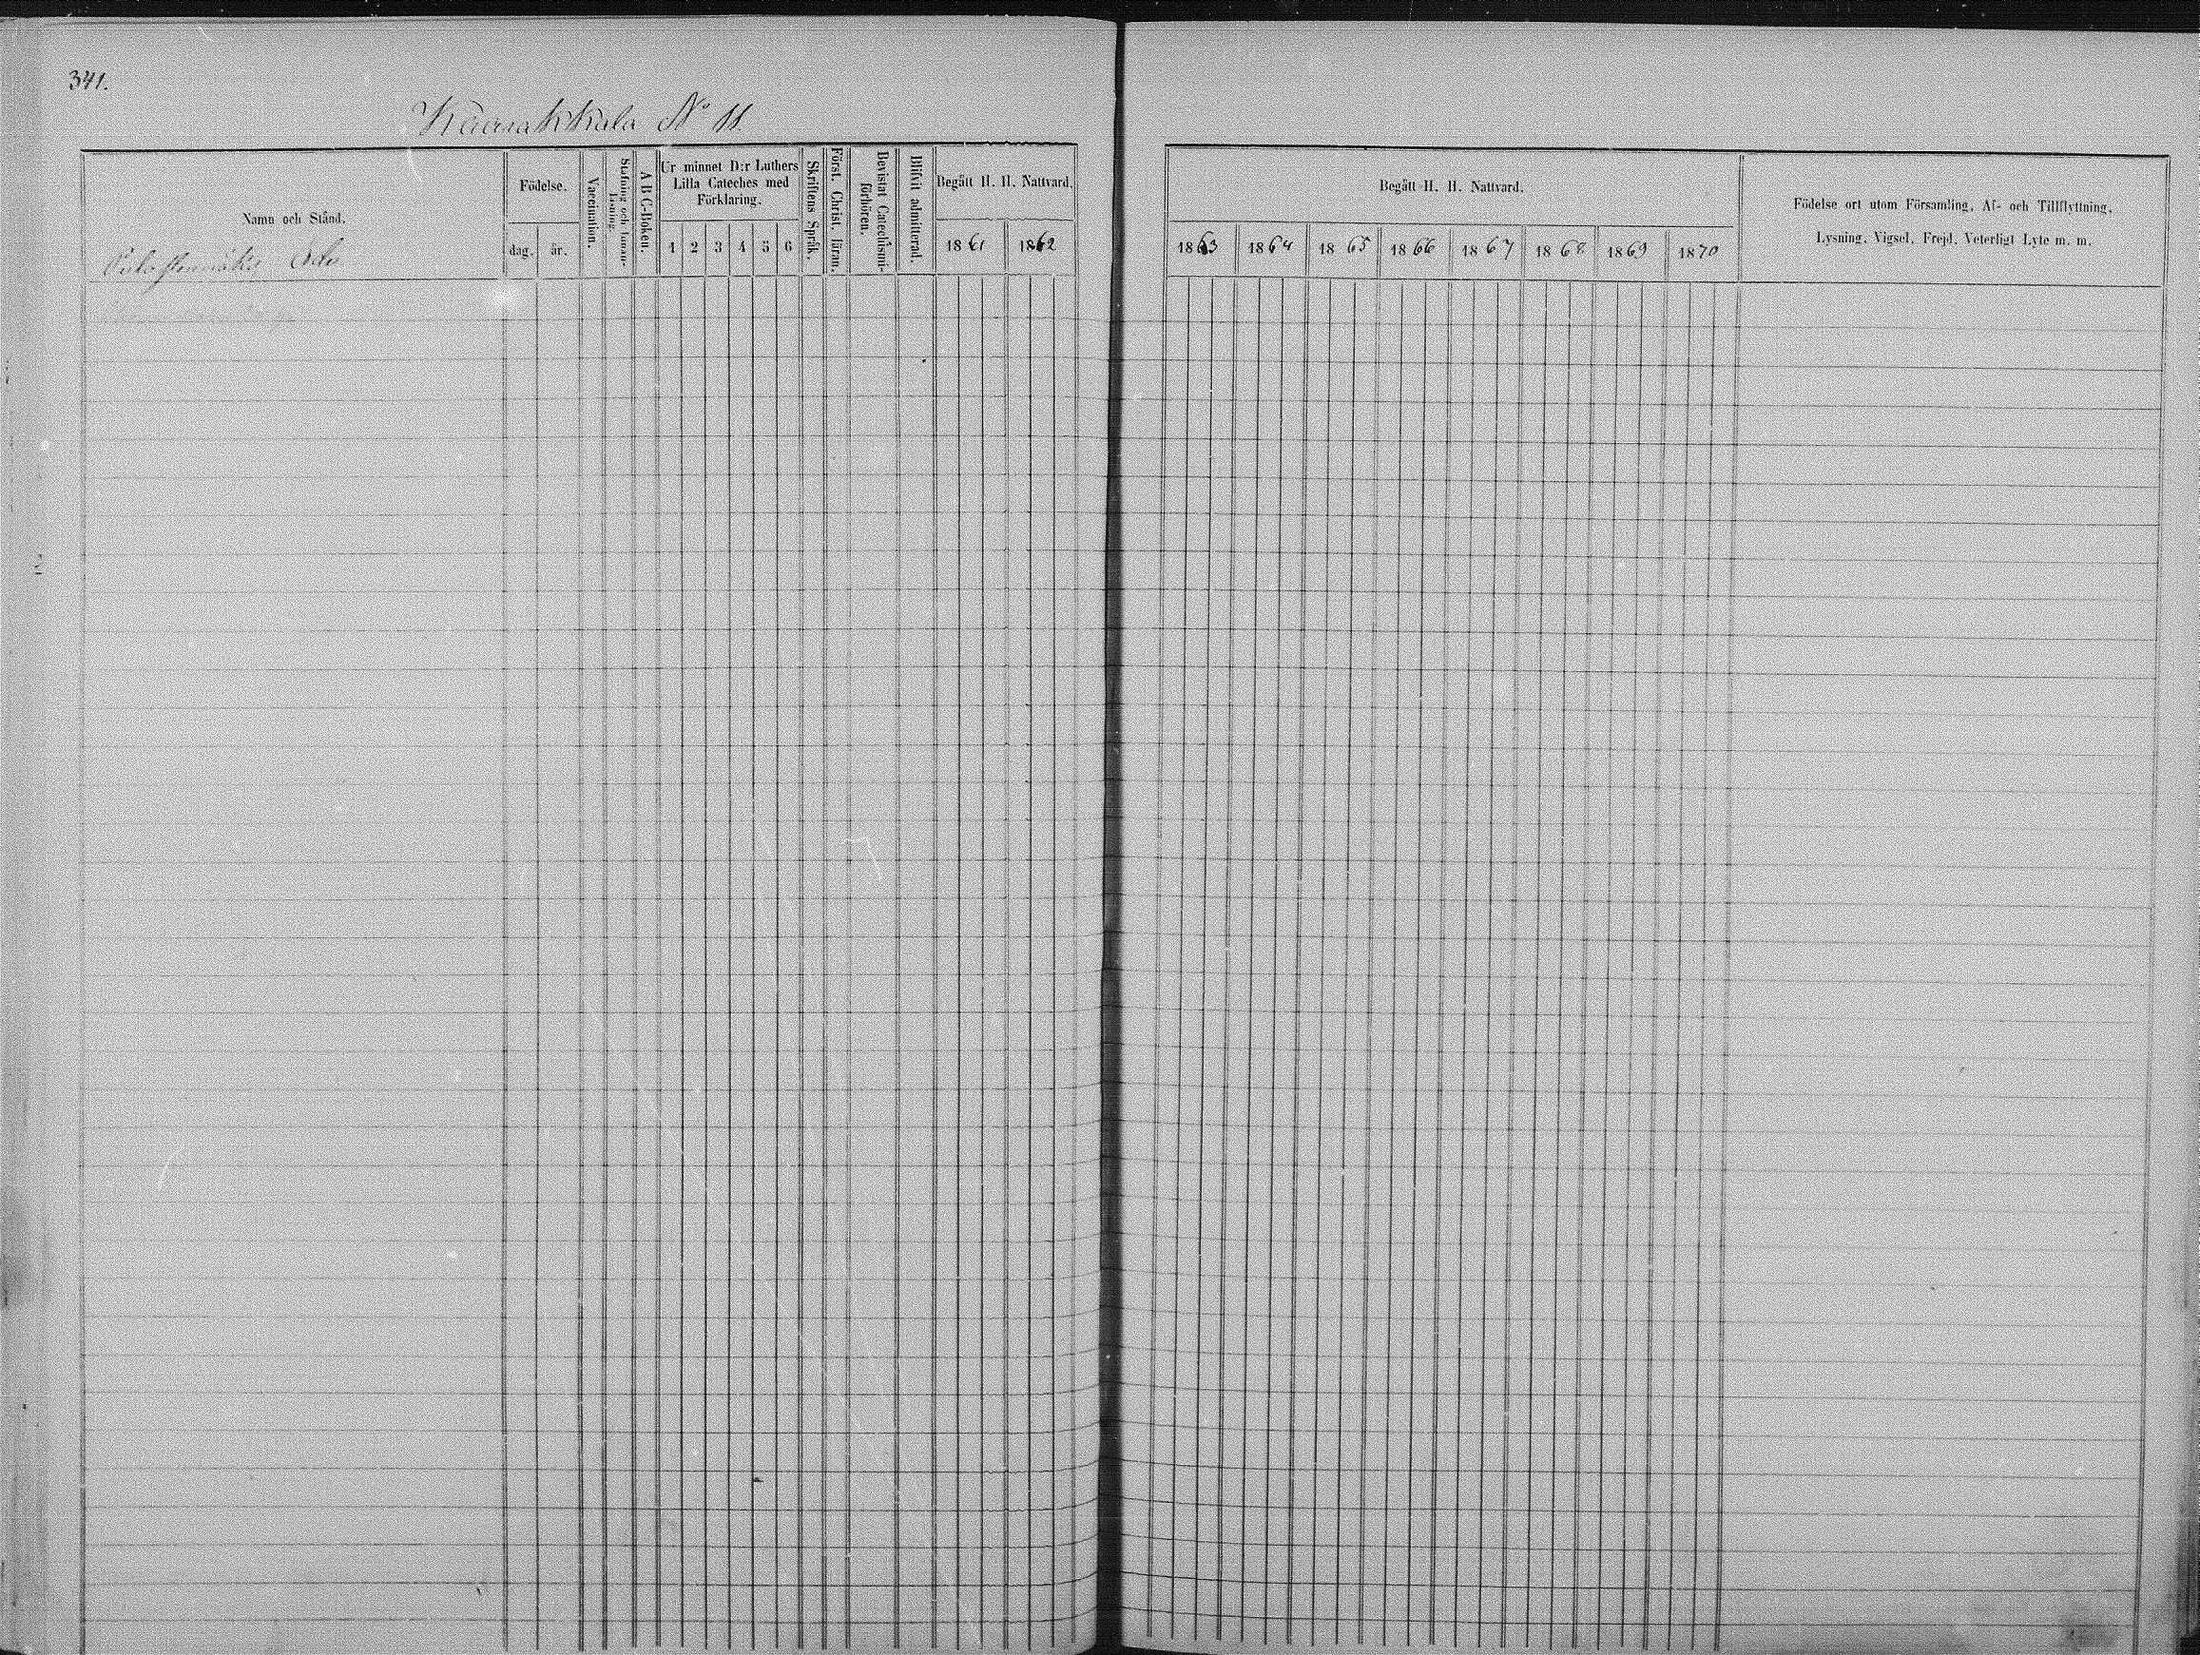 341.
No 11.
Namn och Stånd.
Födelse.
dag.
år.
Vaccination.
Stafning och Innan-
läsning.
A B C-Boken.
Ur minnet D:r Luthers
Lilla Cateches med
Förklaring.
1 2 3 4 5 6
Skriftens Språk.
Först. Christ. läran.
Bevistat Catechismi-
förhören.
Blifvit admitterad.
Begått H. H. Nattvard.
1861 1862
Begått H. H. Nattvard.
1863 1864 1865 1866 1867 1868 1869 1870
Födelse ort utom Församling, Af- och Tillflyttning,
Lysning, Vigsel, Frejd, Veterligt Lyte m. m.